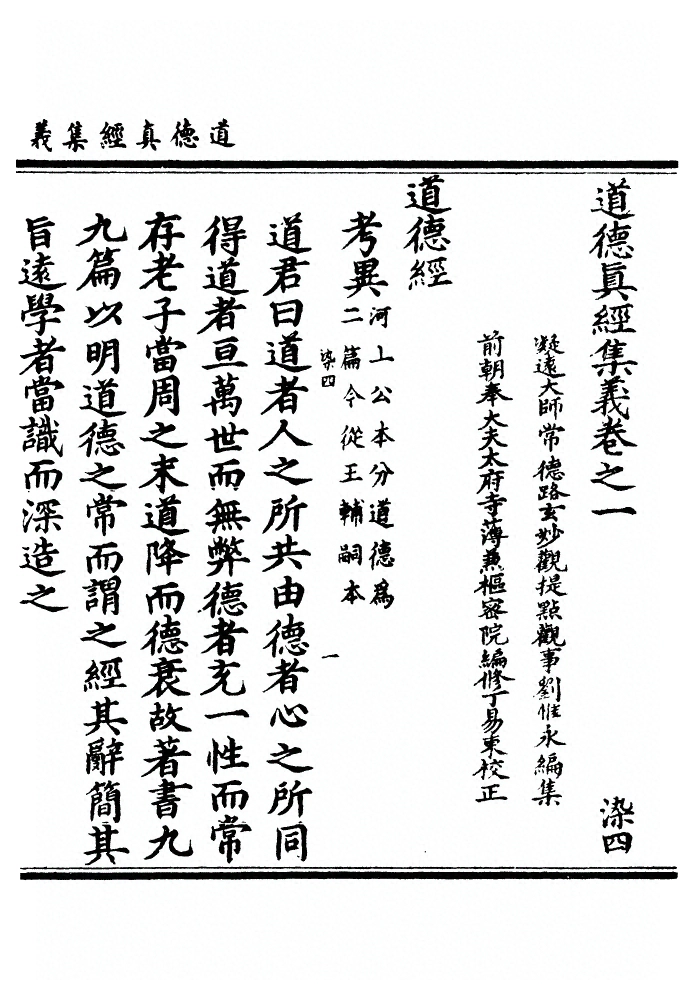 道德真經集義
道德眞經集義卷之一
染四
凝遠大師常德路玄妙觀提點觀事劉惟永編集
前朝奉大夫太府寺簿兼樞密院編修丁易東校正
道德經
考異河上公本分道德為
二篇今從王輔嗣本
染四
一
道君曰道者人之所共由德者心之所同
得道者亘萬世而無弊德者充一性而常
存老子當周之末道降而德衰故著書九
九篇以明道德之常而謂之經其辭簡其
旨遠學者當識而深造之